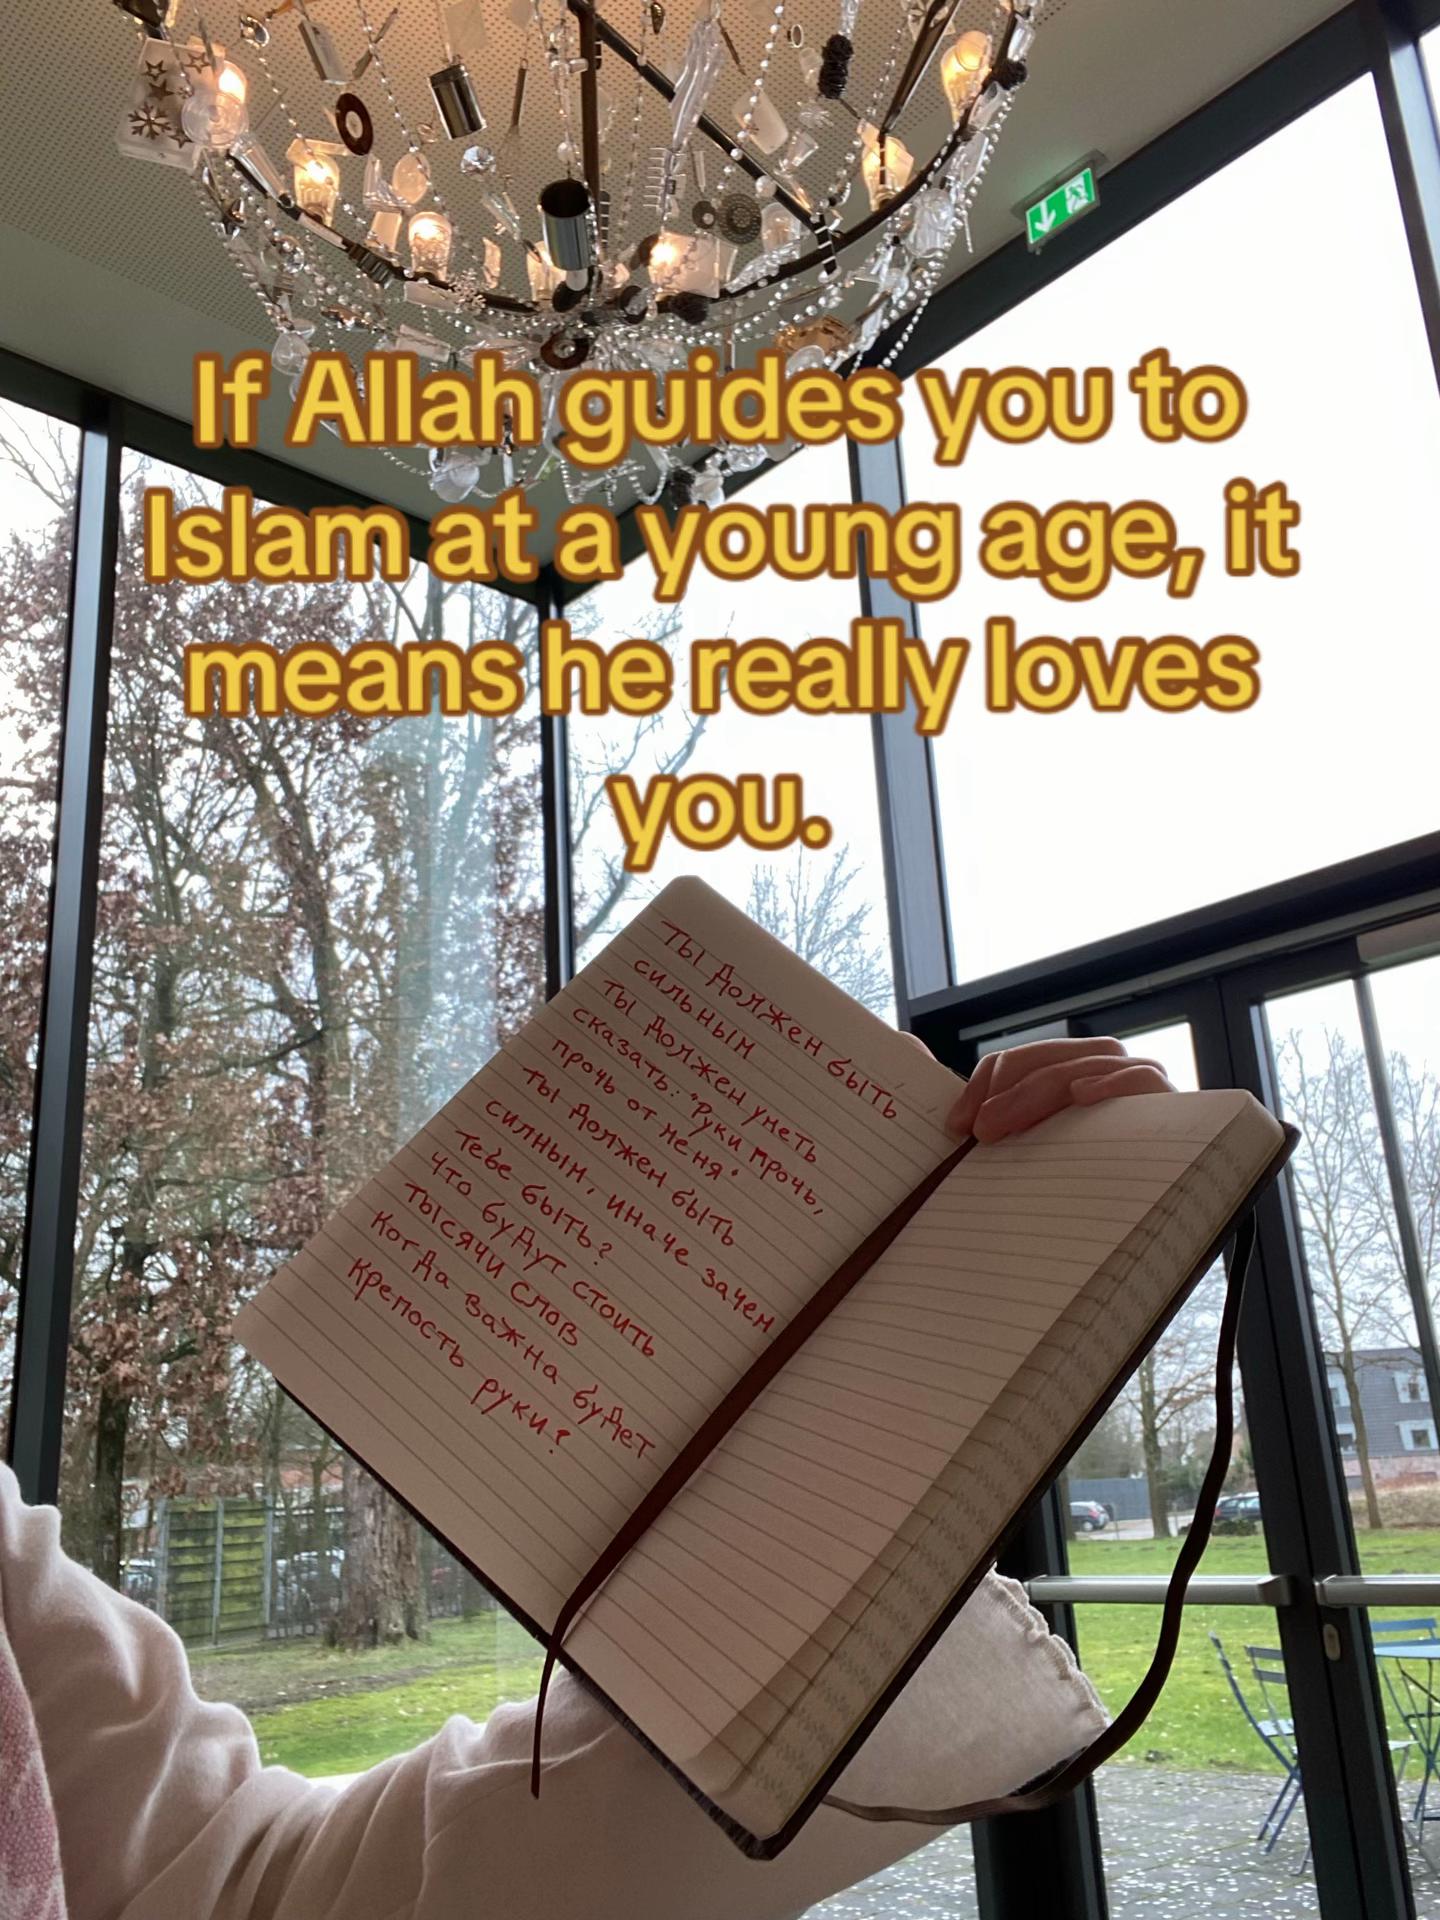 If Allah guides you to
Islam at a young age, it
means he really loves
you.
Ты должен быть
сильным
Ты должен уметь
сказать: "Руки прочь,
прочь от меня"
Ты должен быть
силным, иначе зачем
тебе быть?
Что будут стоить
тысячи слов
Когда важна будет
крепость руки?